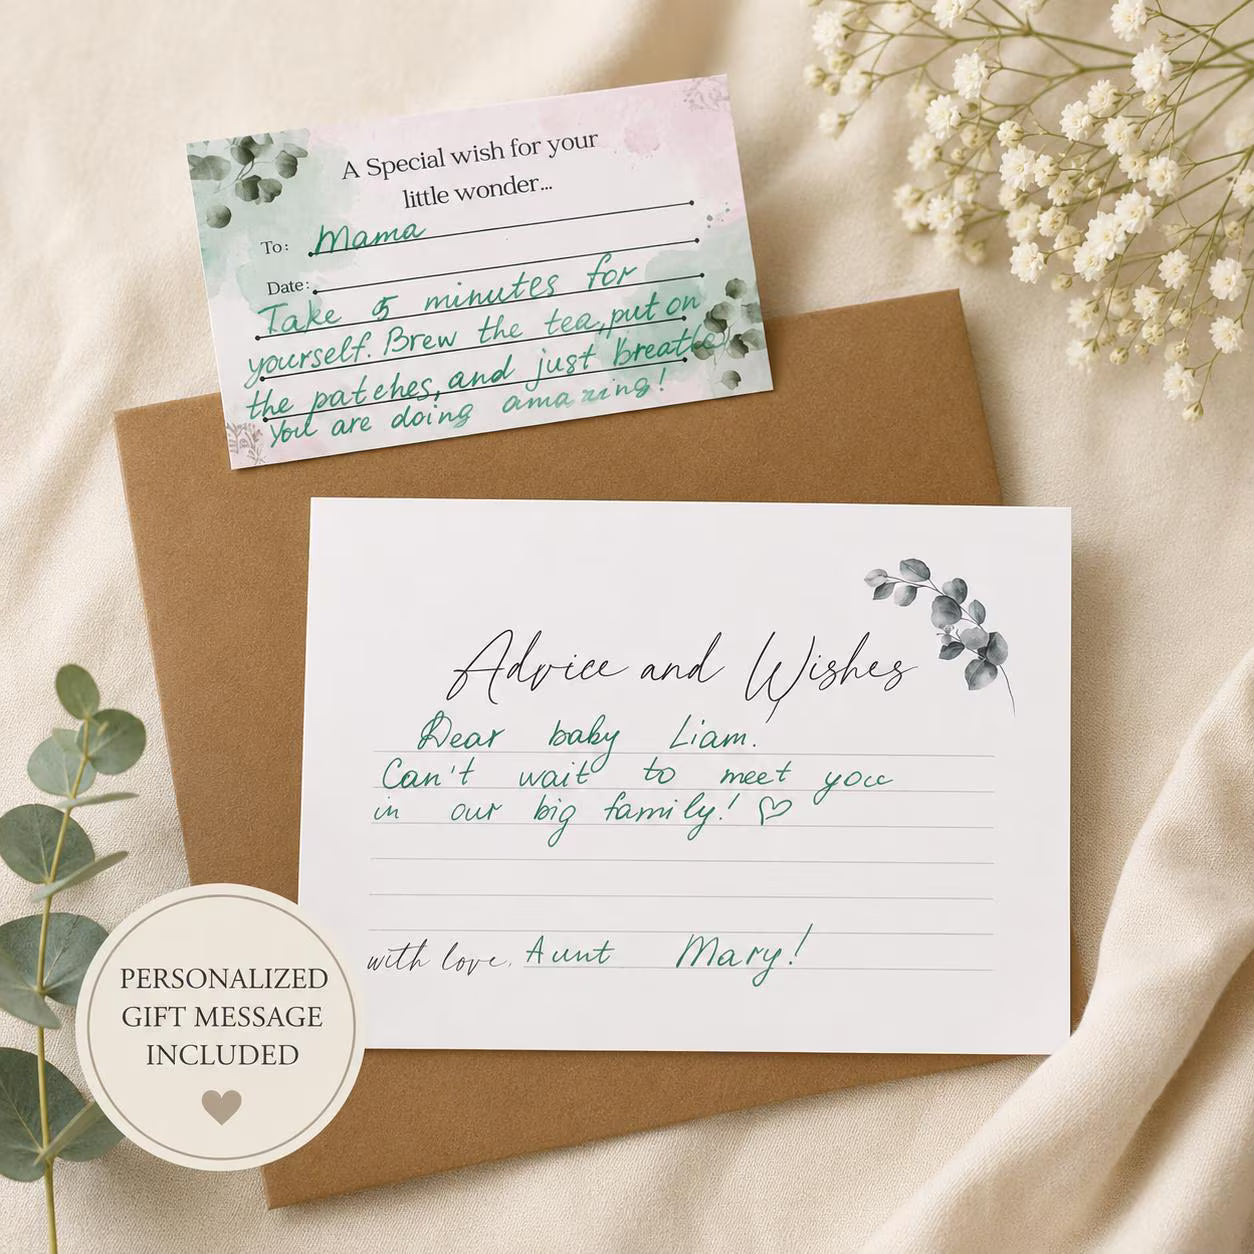 A Special wish for your
little wonder...
To: Mama
Date:
Take 5 minutes for
yourself. Brew the tea, put on
the patches, and just breathe
You are doing amazing!
Advice and Wishes
Dear baby Liam.
Can't wait to meet you
in our big family! ♡
with love, Aunt Mary!
PERSONALIZED
GIFT MESSAGE
INCLUDED